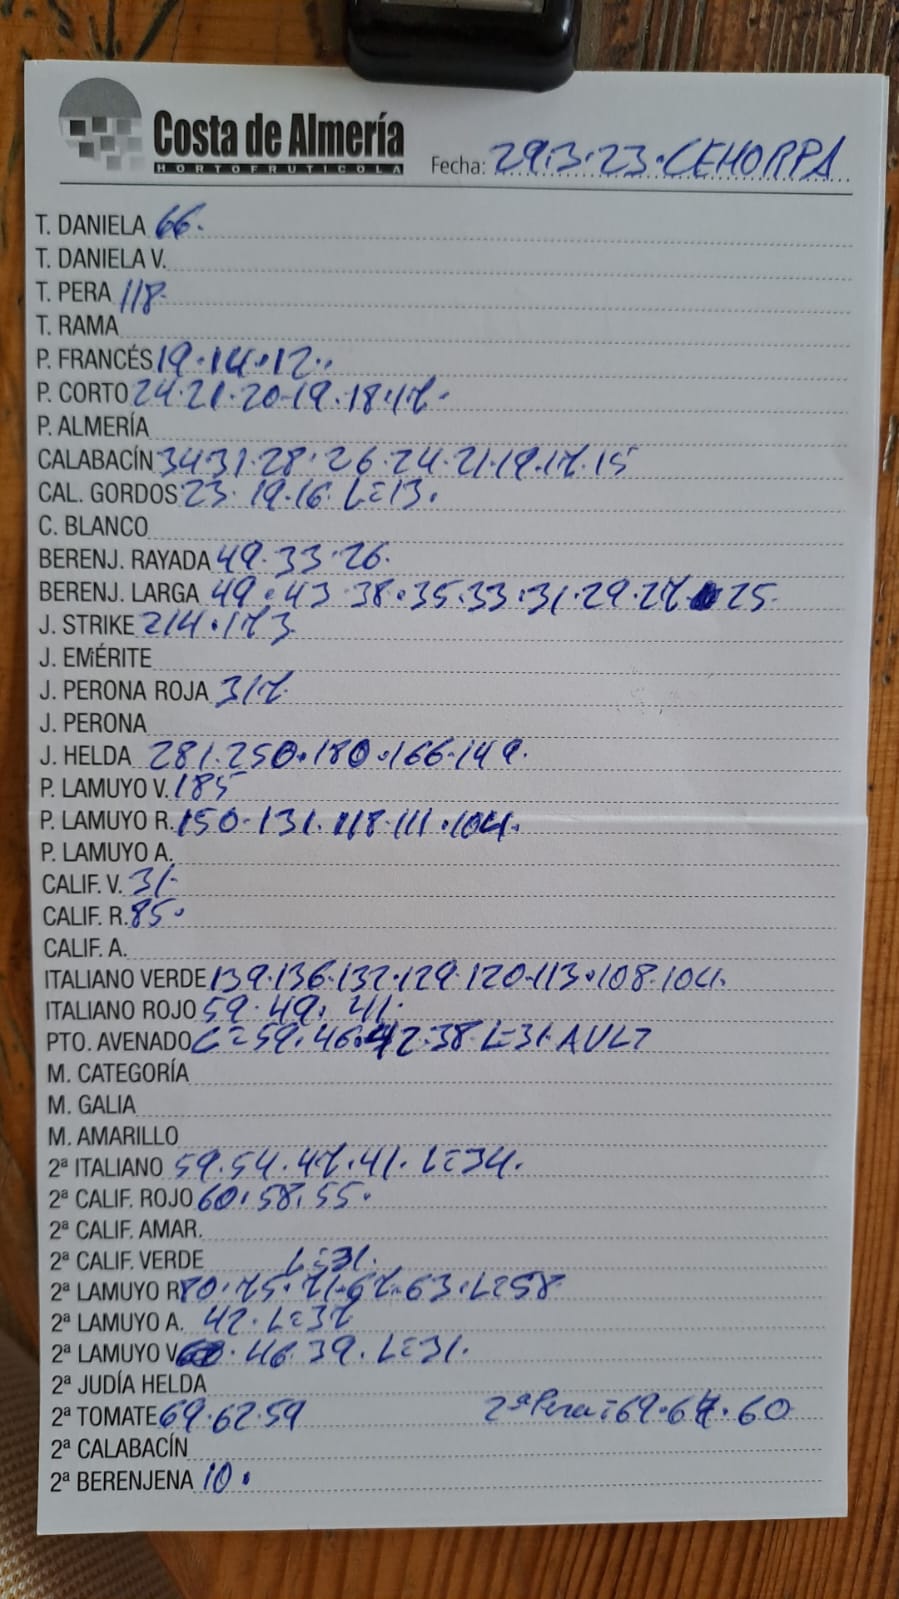 Costa de Almería
HORTOFRUTICOLA
Fecha: 29.3.23.CEHORPA
T. DANIELA 66.
T. DANIELA V.
T. PERA 118.
T. RAMA
P. FRANCÉS 19.14.12.
P. CORTO 24.21.20.19.18.17.
P. ALMERÍA
CALABACÍN 34.31.28.26.24.21.19.17.15
CAL. GORDOS 23.19.16. L=13.
C. BLANCO
BERENJ. RAYADA 49.33.26.
BERENJ. LARGA 49.43.38.35.33.31.29.27. 25.
J. STRIKE 214.173
J. EMÉRITE
J. PERONA ROJA 317.
J. PERONA
J. HELDA 281.250.180.166.149.
P. LAMUYO V. 185
P. LAMUYO R. 150.131.118.111.104.
P. LAMUYO A.
CALIF. V. 31.
CALIF. R. 85.
CALIF. A.
ITALIANO VERDE 139.136.132.129.120.113.108.104.
ITALIANO ROJO 59.49.41.
PTO. AVENADO C=59.46.42.38.L=31.
M. CATEGORÍA
M. GALIA
M. AMARILLO
2ª ITALIANO 59.54.47.41. L=34.
2ª CALIF. ROJO 60.58.55.
2ª CALIF. AMAR.
2ª CALIF. VERDE L=31.
2ª LAMUYO R 80.75.71.67.63.L=58
2ª LAMUYO A. 42.L=37
2ª LAMUYO V. 46.39.L=31.
2ª JUDÍA HELDA
2ª TOMATE 69.62.59 2ª Pera=69.67.60
2ª CALABACÍN
2ª BERENJENA 10.